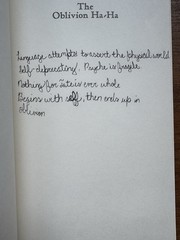 The
Oblivion Ha-Ha
Language attempts to assert the physical world.
Self-deprecating/. Psyche is fragile
Nothing for Tate is ever whole
Begins with self, then ends up in
oblivion